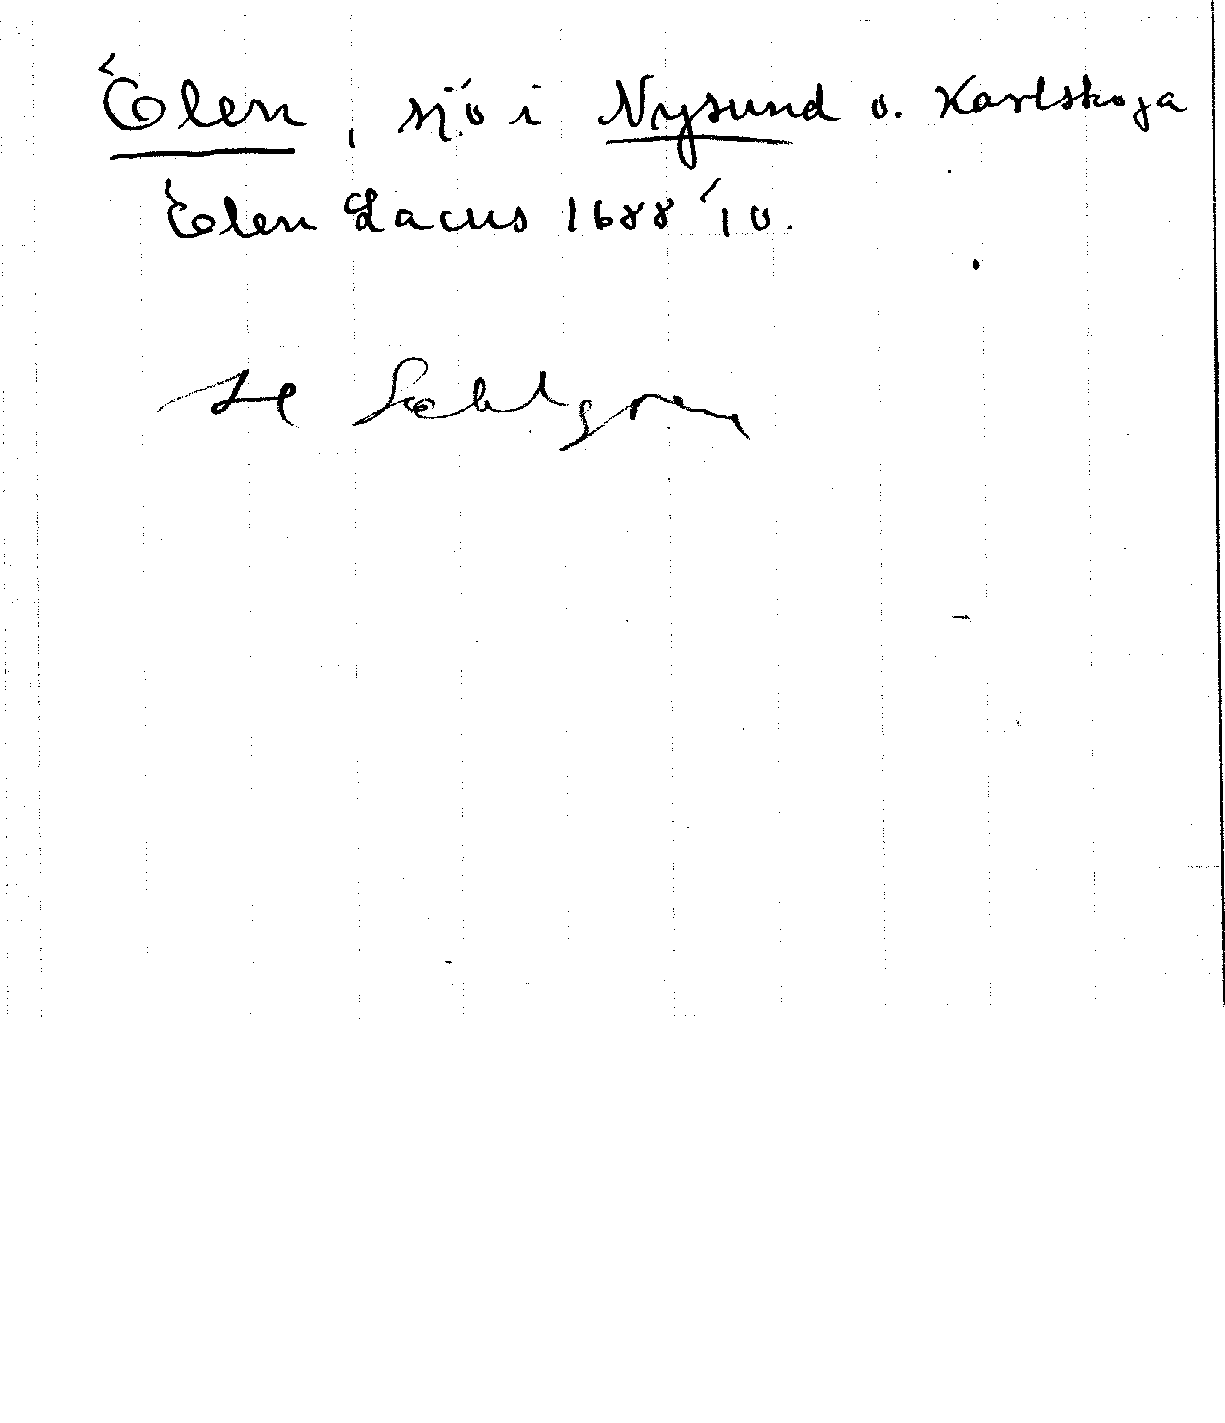 Ölen, sjö i Nysund o. Karlskoga
Ölen Lacus 1688 '10.
Sahlgren